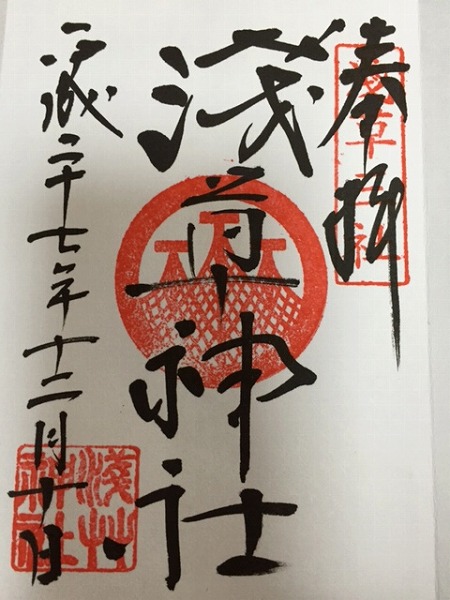 奉拝
淺草三社
淺草神社
平成二十七年十二月十日
淺草
神社